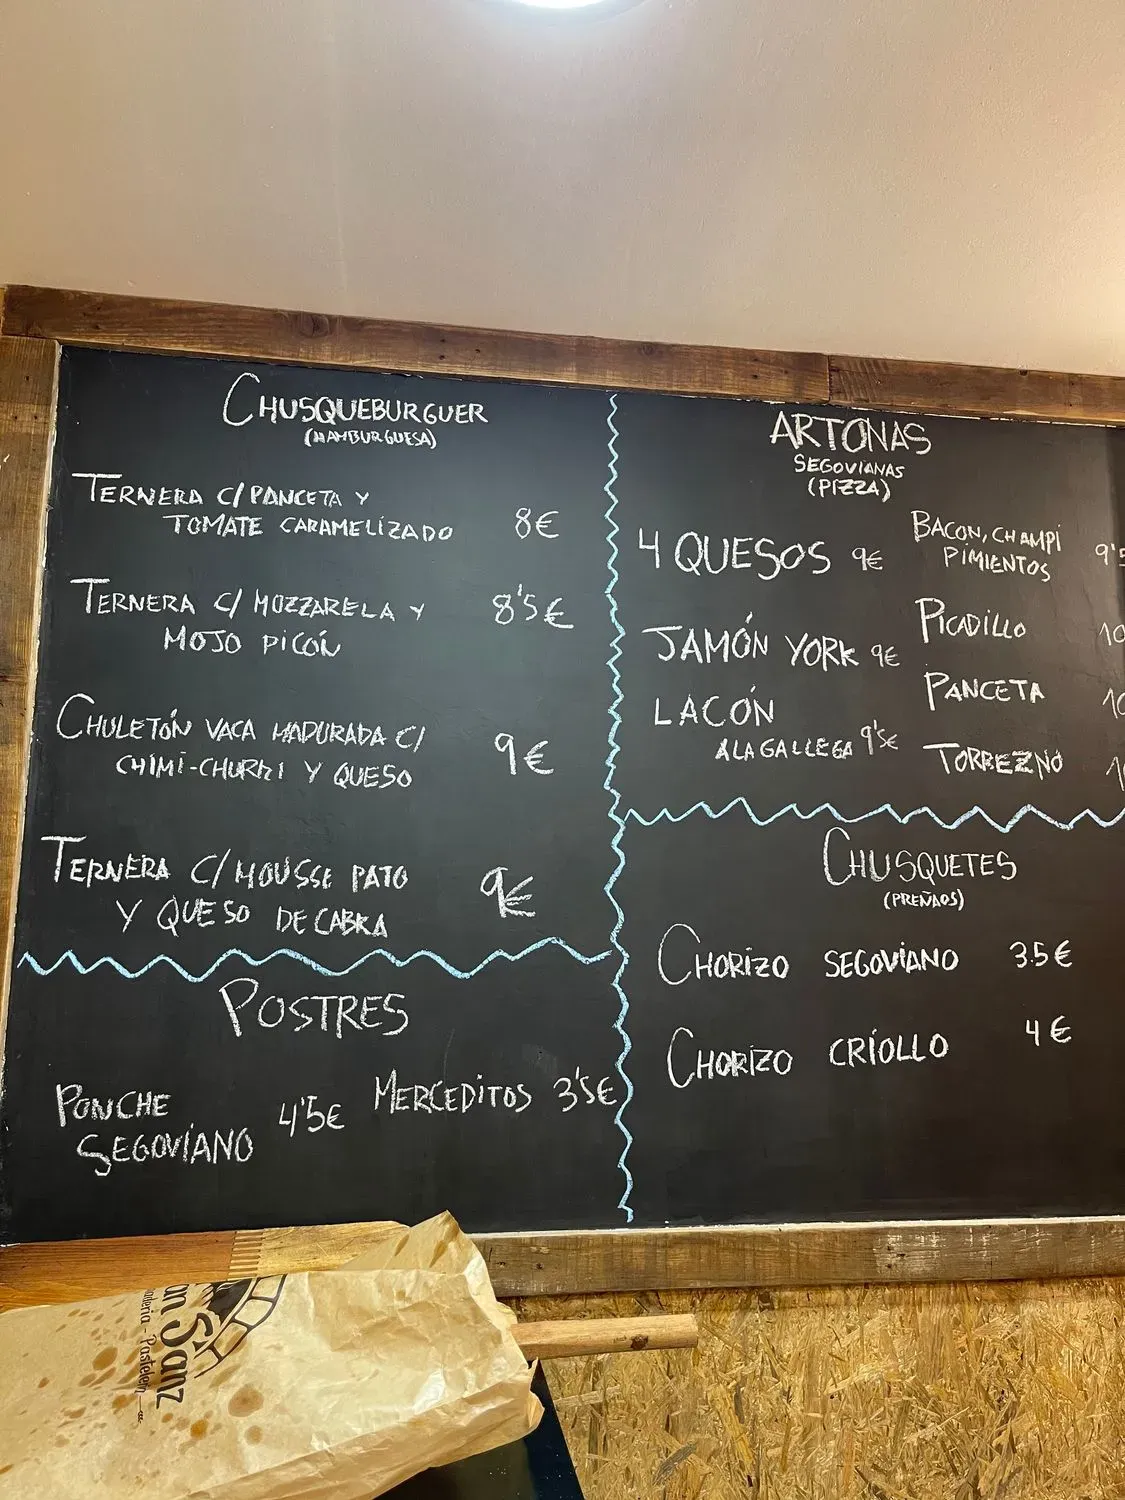 CHUSQUEBURGUER
(HAMBURGUESA)
TERNERA C/PANCETA Y
TOMATE CARAMELIZADO 8€
TERNERA C/ MOZZARELA Y
MOJO PICÓN 8'5€
CHULETÓN VACA MADURADA C/
CHIMI-CHURRI Y QUESO 9€
TERNERA C/MOUSSE PATO
Y QUESO DE CABRA 9€
POSTRES
PONCHE
SEGOVIANO 4'5€
MERCEDITOS 3'5€
ARTONAS
SEGOVIANAS
(PIZZA)
4 QUESOS 9€
JAMÓN YORK 9€
LACÓN
A LA GALLEGA 9'5€
BACON, CHAMPI
PIMIENTOS
PICADILLO
PANCETA
TORREZNO
CHUSQUETES
(PREÑAOS)
CHORIZO SEGOVIANO 3.5€
CHORIZO CRIOLLO 4€
Sanz